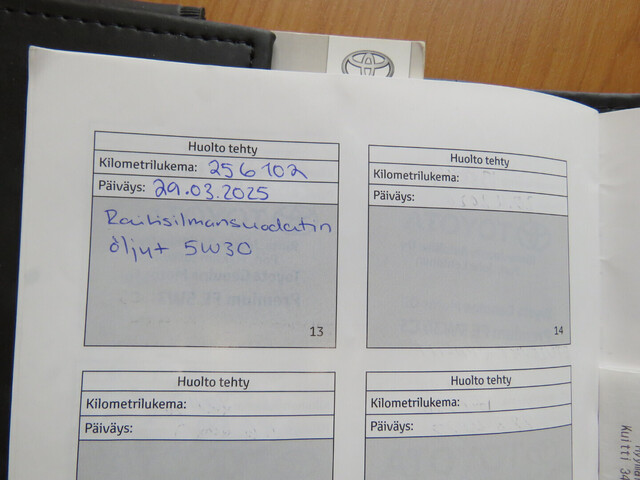 Huolto tehty
Kilometrilukema: 256102
Päiväys: 29.03.2025
Raitisilmansuodatin
öljyt 5W30
13
Huolto tehty
Kilometrilukema:
Päiväys:
14
Huolto tehty
Kilometrilukema:
Päiväys:
Huolto tehty
Kilometrilukema:
Päiväys:
Kuitti 34